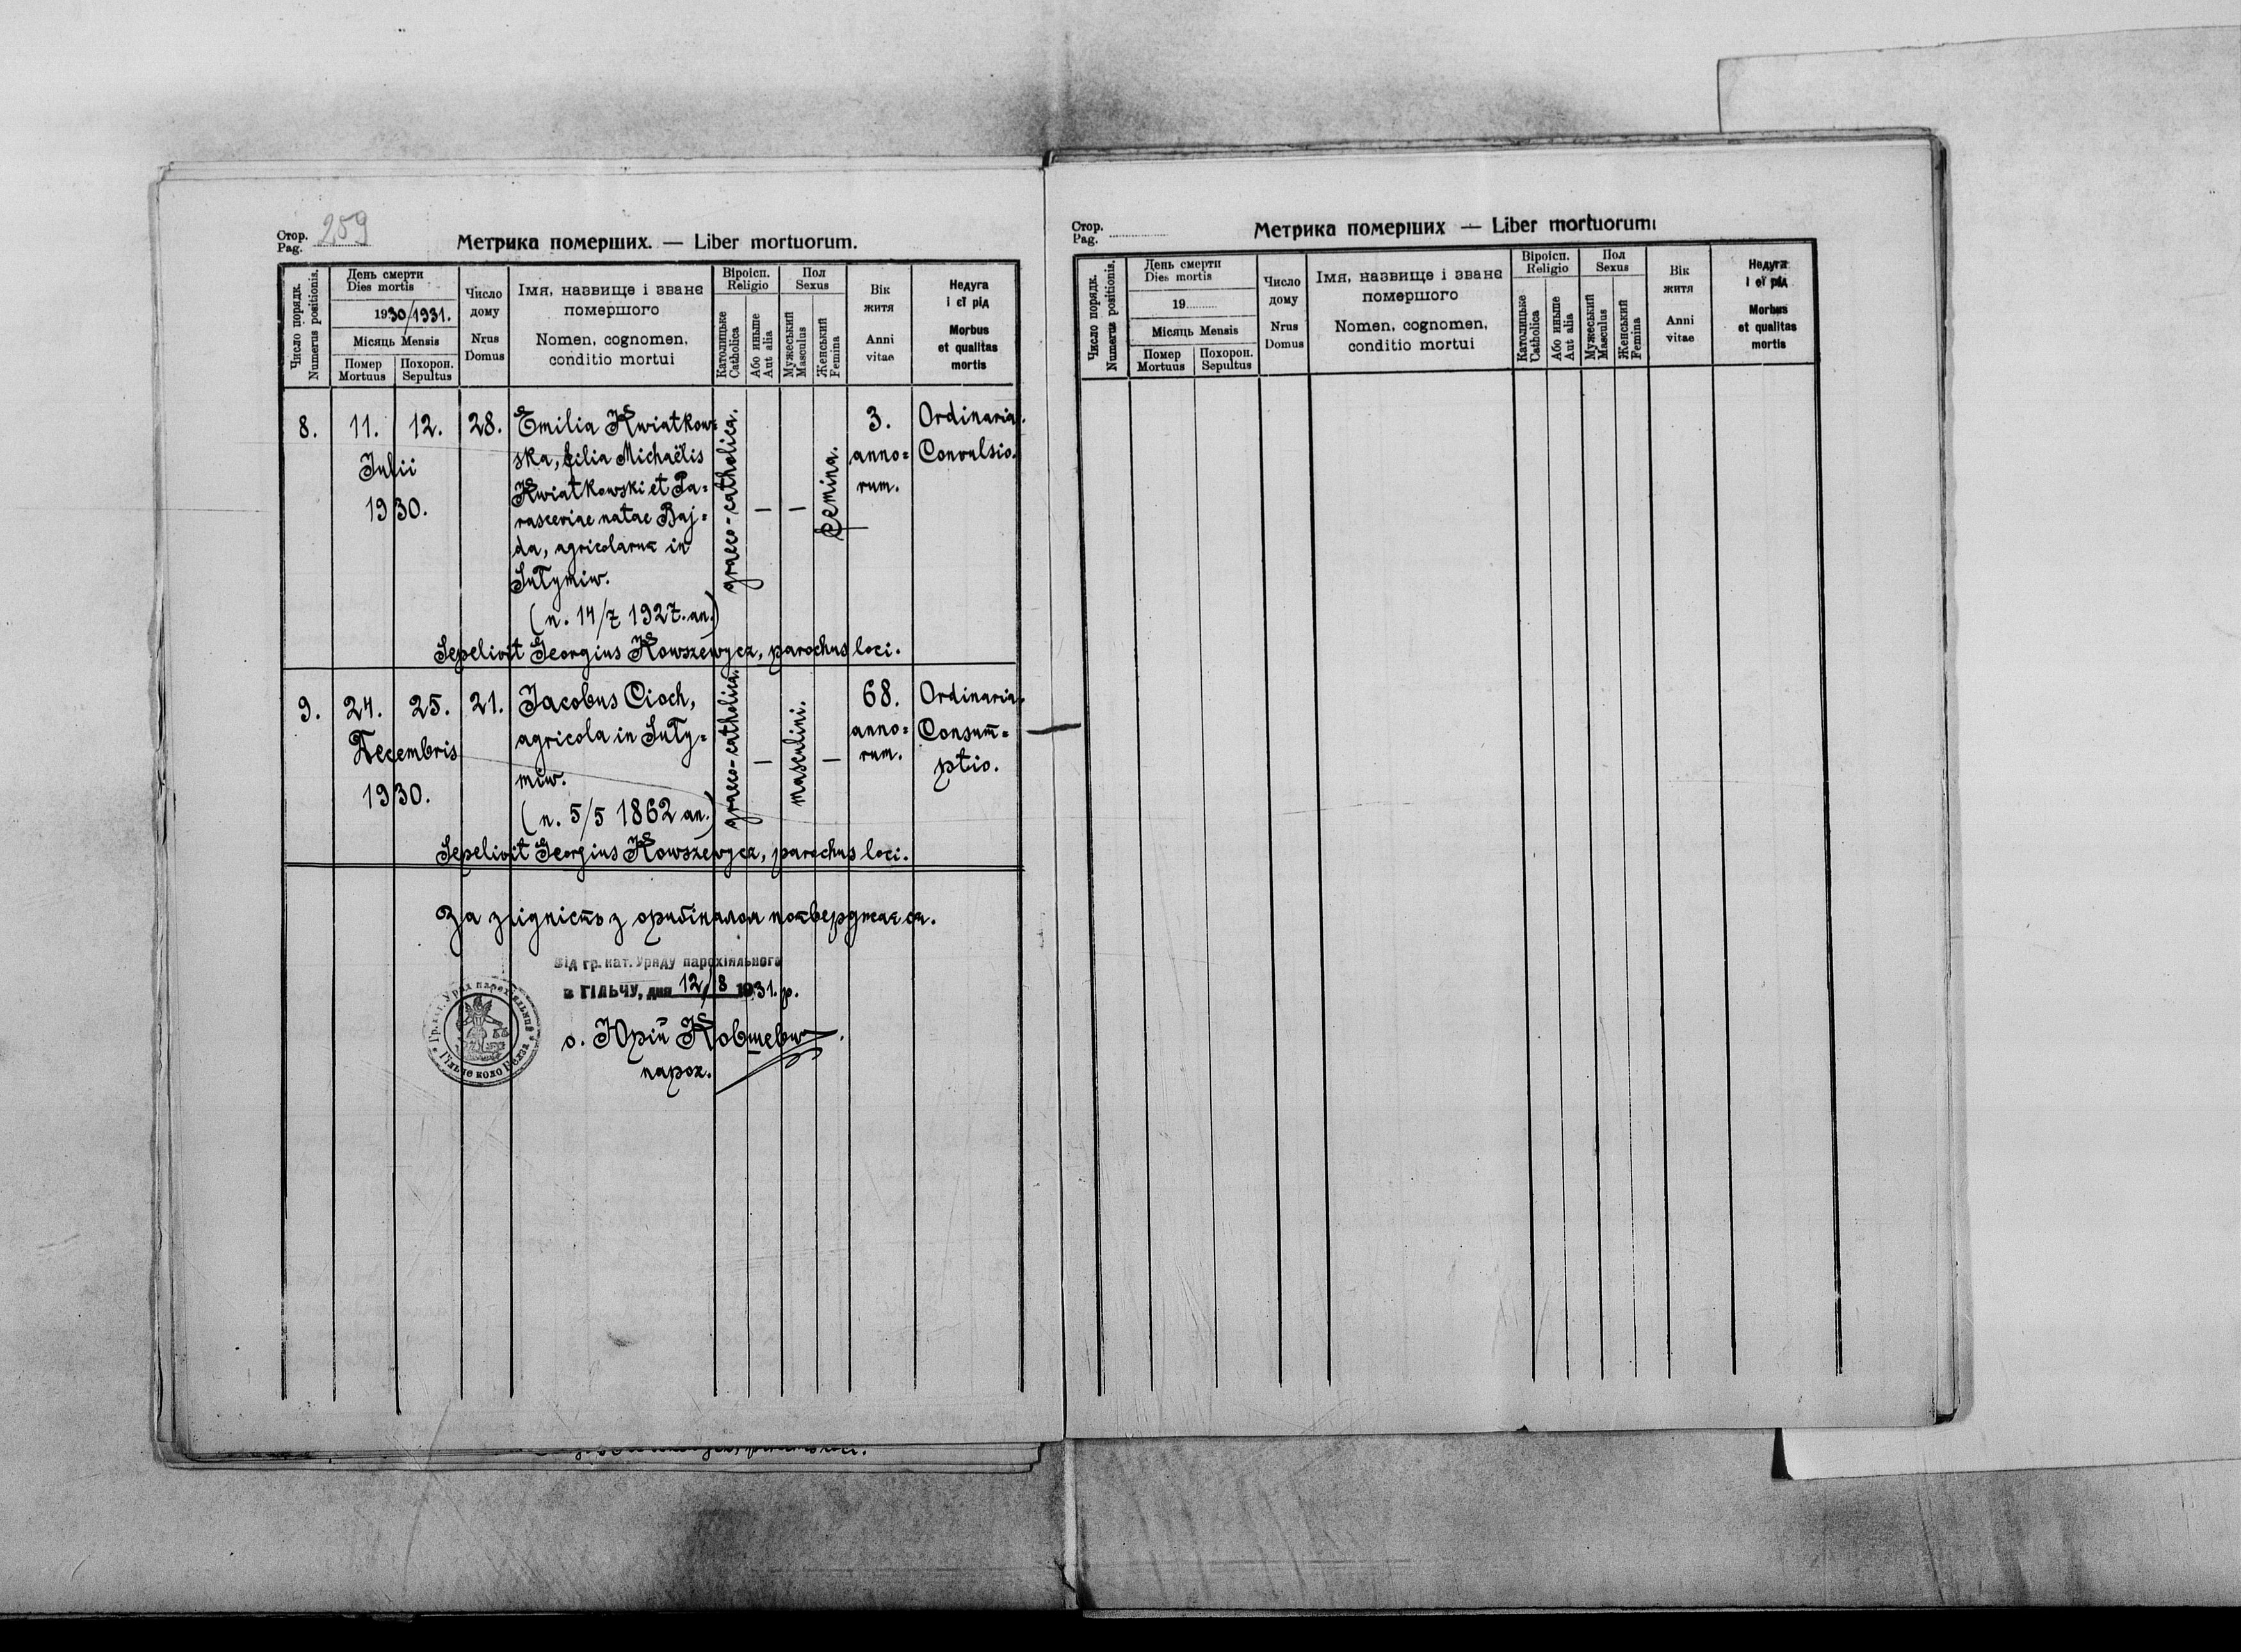 Стор.
Pag. 259
Метрика померших. — Liber mortuorum.
Число порядк.
Numerus positionis.
День смерти
Dies mortis
1930/1931.
Місяць Mensis
Помер
Mortuus
Похорон.
Sepultus
Число
дому
Nrus
Domus
Імя, назвище і званє
помершого
Nomen, cognomen,
conditio mortui
Віроісп.
Religio
Католицьке
Catholica
Або иньше
Aut alia
Пол
Sexus
Мужеський
Masculus
Женський
Femina
Вік
житя
Anni
vitae
Недуга
і єї рід
Morbus
et qualitas
mortis
8. 11. 12. 28.
Julii
1930.
Emilia Kwiatkow=
ska, filia Michaëlis
Kwiatkowski et Pa=
rasceviae natae Baj=
da, agricolarum in
Sułymiw.
(n. 14/7 1927. an.)
graeco-catholica.
— —
femina.
3.
anno=
rum.
Ordinaria.
Convulsio.
Sepelivit Georgius Kowszewycz, parochus loci.
9. 24. 25. 21.
Decembris
1930.
Jacobus Cioch,
agricola in Suły=
miw.
(n. 5/5 1862 an.)
graeco-catholica.
—
masculini.
—
68.
anno=
rum.
Ordinaria.
Consum=
ptio.
Sepelivit Georgius Kowszewycz, parochus loci.
За згідність з оригіналом потверджаєся.
Від гр. кат. Уряду парохіяльного
в ГІЛЬЧУ, дня 12/8 1931. р.
о. Юрій Ковшевич.
парох.
Гр. кат. Уряд парохіяльний
Гільче коло Белза
Стор.
Pag.
Метрика померших — Liber mortuorum
Число порядк.
Numerus positionis.
День смерти
Dies mortis
19
Місяць Mensis
Помер
Mortuus
Похорон.
Sepultus
Число
дому
Nrus
Domus
Імя, назвище і званє
помершого
Nomen, cognomen,
conditio mortui
Віроісп.
Religio
Католицьке
Catholica
Або иньше
Aut alia
Пол
Sexus
Мужеський
Masculus
Женський
Femina
Вік
житя
Anni
vitae
Недуга
і єї рід
Morbus
et qualitas
mortis